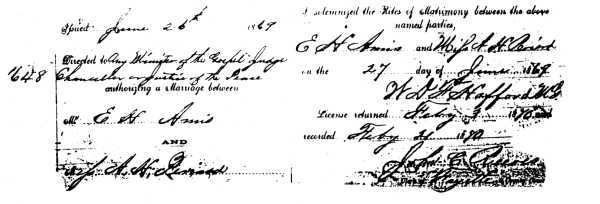 Issued June 26th 1869
Directed to Any Minister of the Gospel, Judge
648
Chancellor or Justice of the Peace
authorizing a Marriage between
Mr E H Amis
AND
Miss A. H.
I solemnized the Rites of Matrimony between the above
named parties,
E H Amis and Miss A. H.
on the 27 day of June 1869
W D F Hafford
License returned Feby 3 1870
recorded Feby 1870